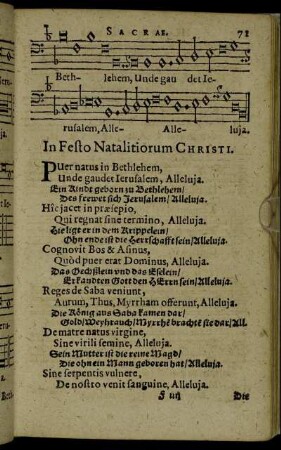 SACRAE. 71
Beth- lehem, Unde gau det Ie-
rusalem, Alle- Alle- luja.
In Festo Natalitiorum CHRISTI.
PUer natus in Bethlehem,
Unde gaudet Ierusalem, Alleluja.
Ein Kindt geborn zu Bethlehem/
Des frewet sich Jerusalem/ Alleluja.
Hîc jacet in præsepio,
Qui regnat sine termino, Alleluja.
Hie ligt er in dem Krippelein/
Ohn ende ist die Herrschafft sein/ Alleluja.
Cognovit Bos & Asinus,
Quòd puer erat Dominus, Alleluja.
Das Oechßlein vnd das Eselein/
Erkandten Gott den HErrn sein/ Alleluja.
Reges de Saba veniunt,
Aurum, Thus, Myrrham offerunt, Alleluja.
Die König aus Saba kamen dar/
Gold/ Weyhrauch/ Myrrhē brachtē sie dar/ All.
De matre natus virgine,
Sine virili semine, Alleluja.
Sein Mutter ist die reine Magd/
Die ohn ein Mann geboren hat/ Alleluja.
Sine serpentis vulnere,
De nostro venit sanguine, Alleluja.
Die